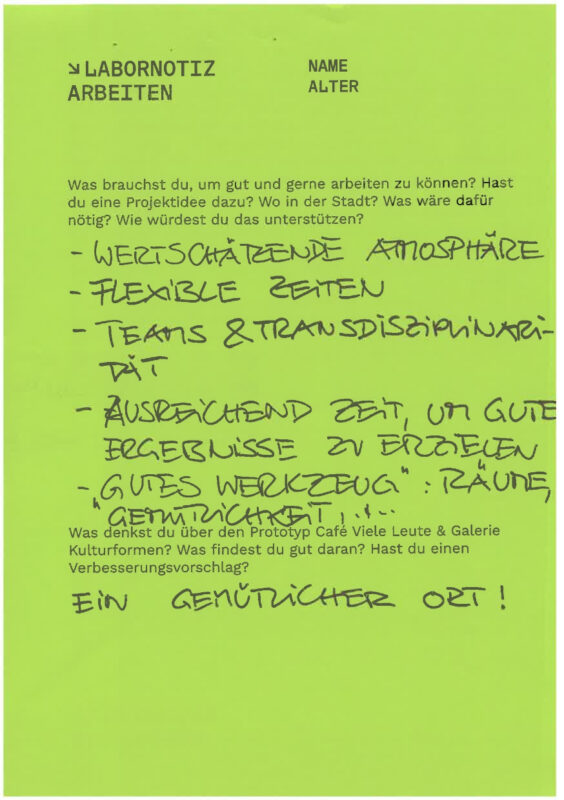 ↘ LABORNOTIZ
ARBEITEN
NAME
ALTER
Was brauchst du, um gut und gerne arbeiten zu können? Hast
du eine Projektidee dazu? Wo in der Stadt? Was wäre dafür
nötig? Wie würdest du das unterstützen?
- WERTSCHÄTZENDE ATMOSPHÄRE
- FLEXIBLE ZEITEN
- TEAMS & TRANSDISZIPLINARI-
TÄT
- AUSREICHEND ZEIT, UM GUTE
ERGEBNISSE ZU ERZIELEN
- "GUTES WERKZEUG": RÄUME,
GEMÜTLICHKEIT, ...
Was denkst du über den Prototyp Café Viele Leute & Galerie
Kulturformen? Was findest du gut daran? Hast du einen
Verbesserungsvorschlag?
EIN GEMÜTLICHER ORT!